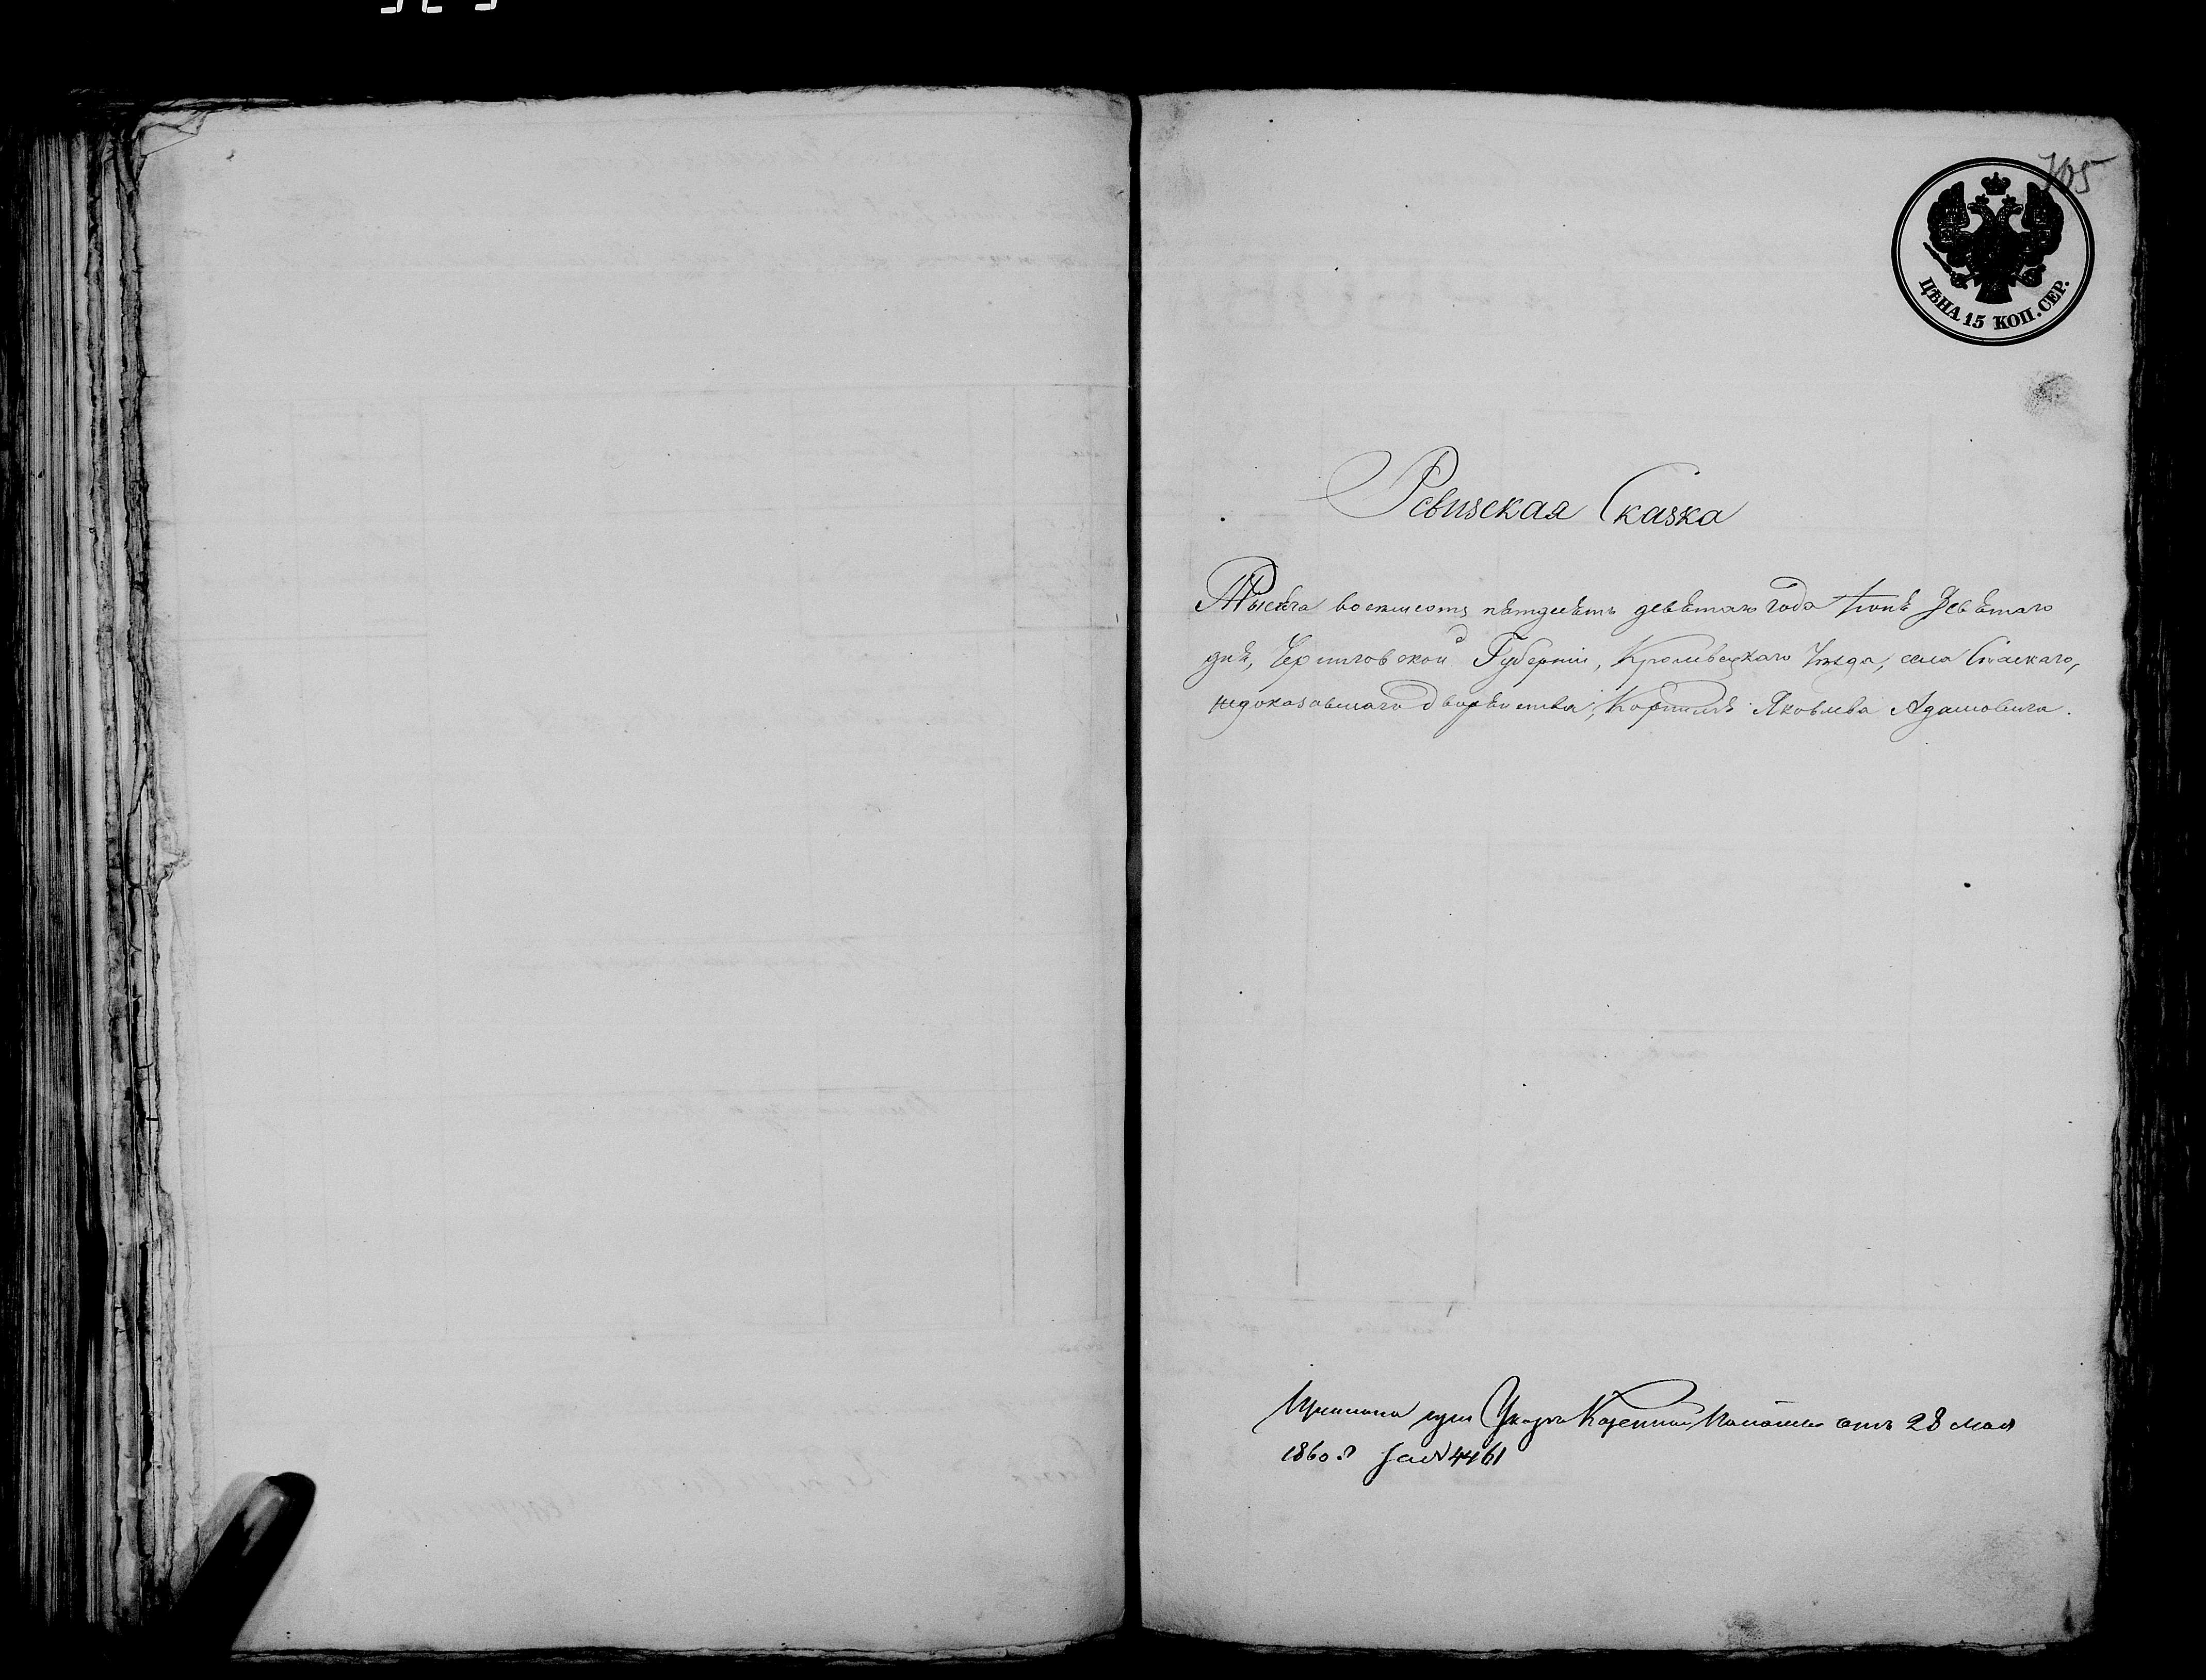 705
ЦѢНА 15 КОП. СЕР.
Ревизская Сказка
Тысяча восемьсотъ пятдесятъ девятаго года Іюня Девятаго
дня, Черниговской Губерніи, Кролевецкаго Уѣзда, села Спаскаго,
недоказавшаго дворянства, Корнилія Яковлева Адамовича.
Указа Казенной Палаты отъ 28 мая
1860 г. за № 4461